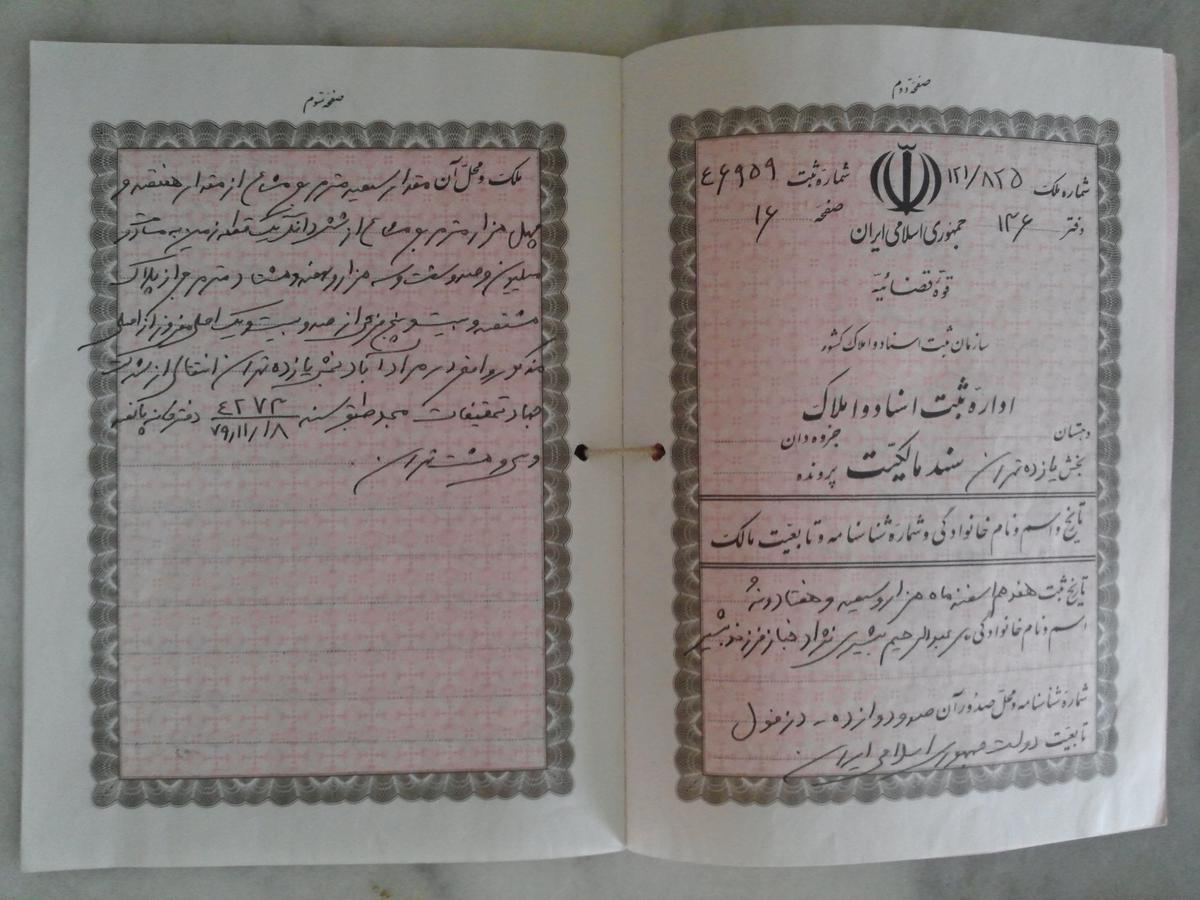 صفحه دوم
شماره ملک ۱۲۱/۸۲۵ شماره ثبت ۴۶۹۵۹
دفتر ۱۴۶ صفحه ۱۶
جمهوری اسلامی ایران
قوه قضائیه
سازمان ثبت اسناد و املاک کشور
اداره ثبت اسناد و املاک
دهستان جزوه دان
بخش یازده تهران سند مالکیت پرونده
تاریخ و اسم و نام خانوادگی و شماره شناسنامه و تابعیت مالک
تاریخ ثبت هفدهم اسفند ماه هزار و سیصد و هفتاد و نه
اسم و نام خانوادگی عبدالرحیم بشیری نژاد خباز فرزند بشیر
شماره شناسنامه و محل صدور آن صد و دوازده - دزفول
تابعیت دولت جمهوری اسلامی ایران
صفحه سوم
ملک و محل آن مقدار سیصد متر مربع مشاع از مقدار هفتصد و
چهل هزار متر مربع مشاع از ششدانگ یک قطعه زمین به مساحت دو
میلیون و صد و شصت و سه هزار و متر مربع از پلاک
هشتصد و بیست و پنج فرعی از صد و بیست و یک اصلی مفروز از اصلی
مذکور واقع در مراد آباد بخش یازده تهران انتقالی از شرکت
جهاد تحقیقات مجد طبق سند ۴۲۷۳ دفترخانه پانصد
۷۹/۱۱/۱۸
و سی و هشت تهران